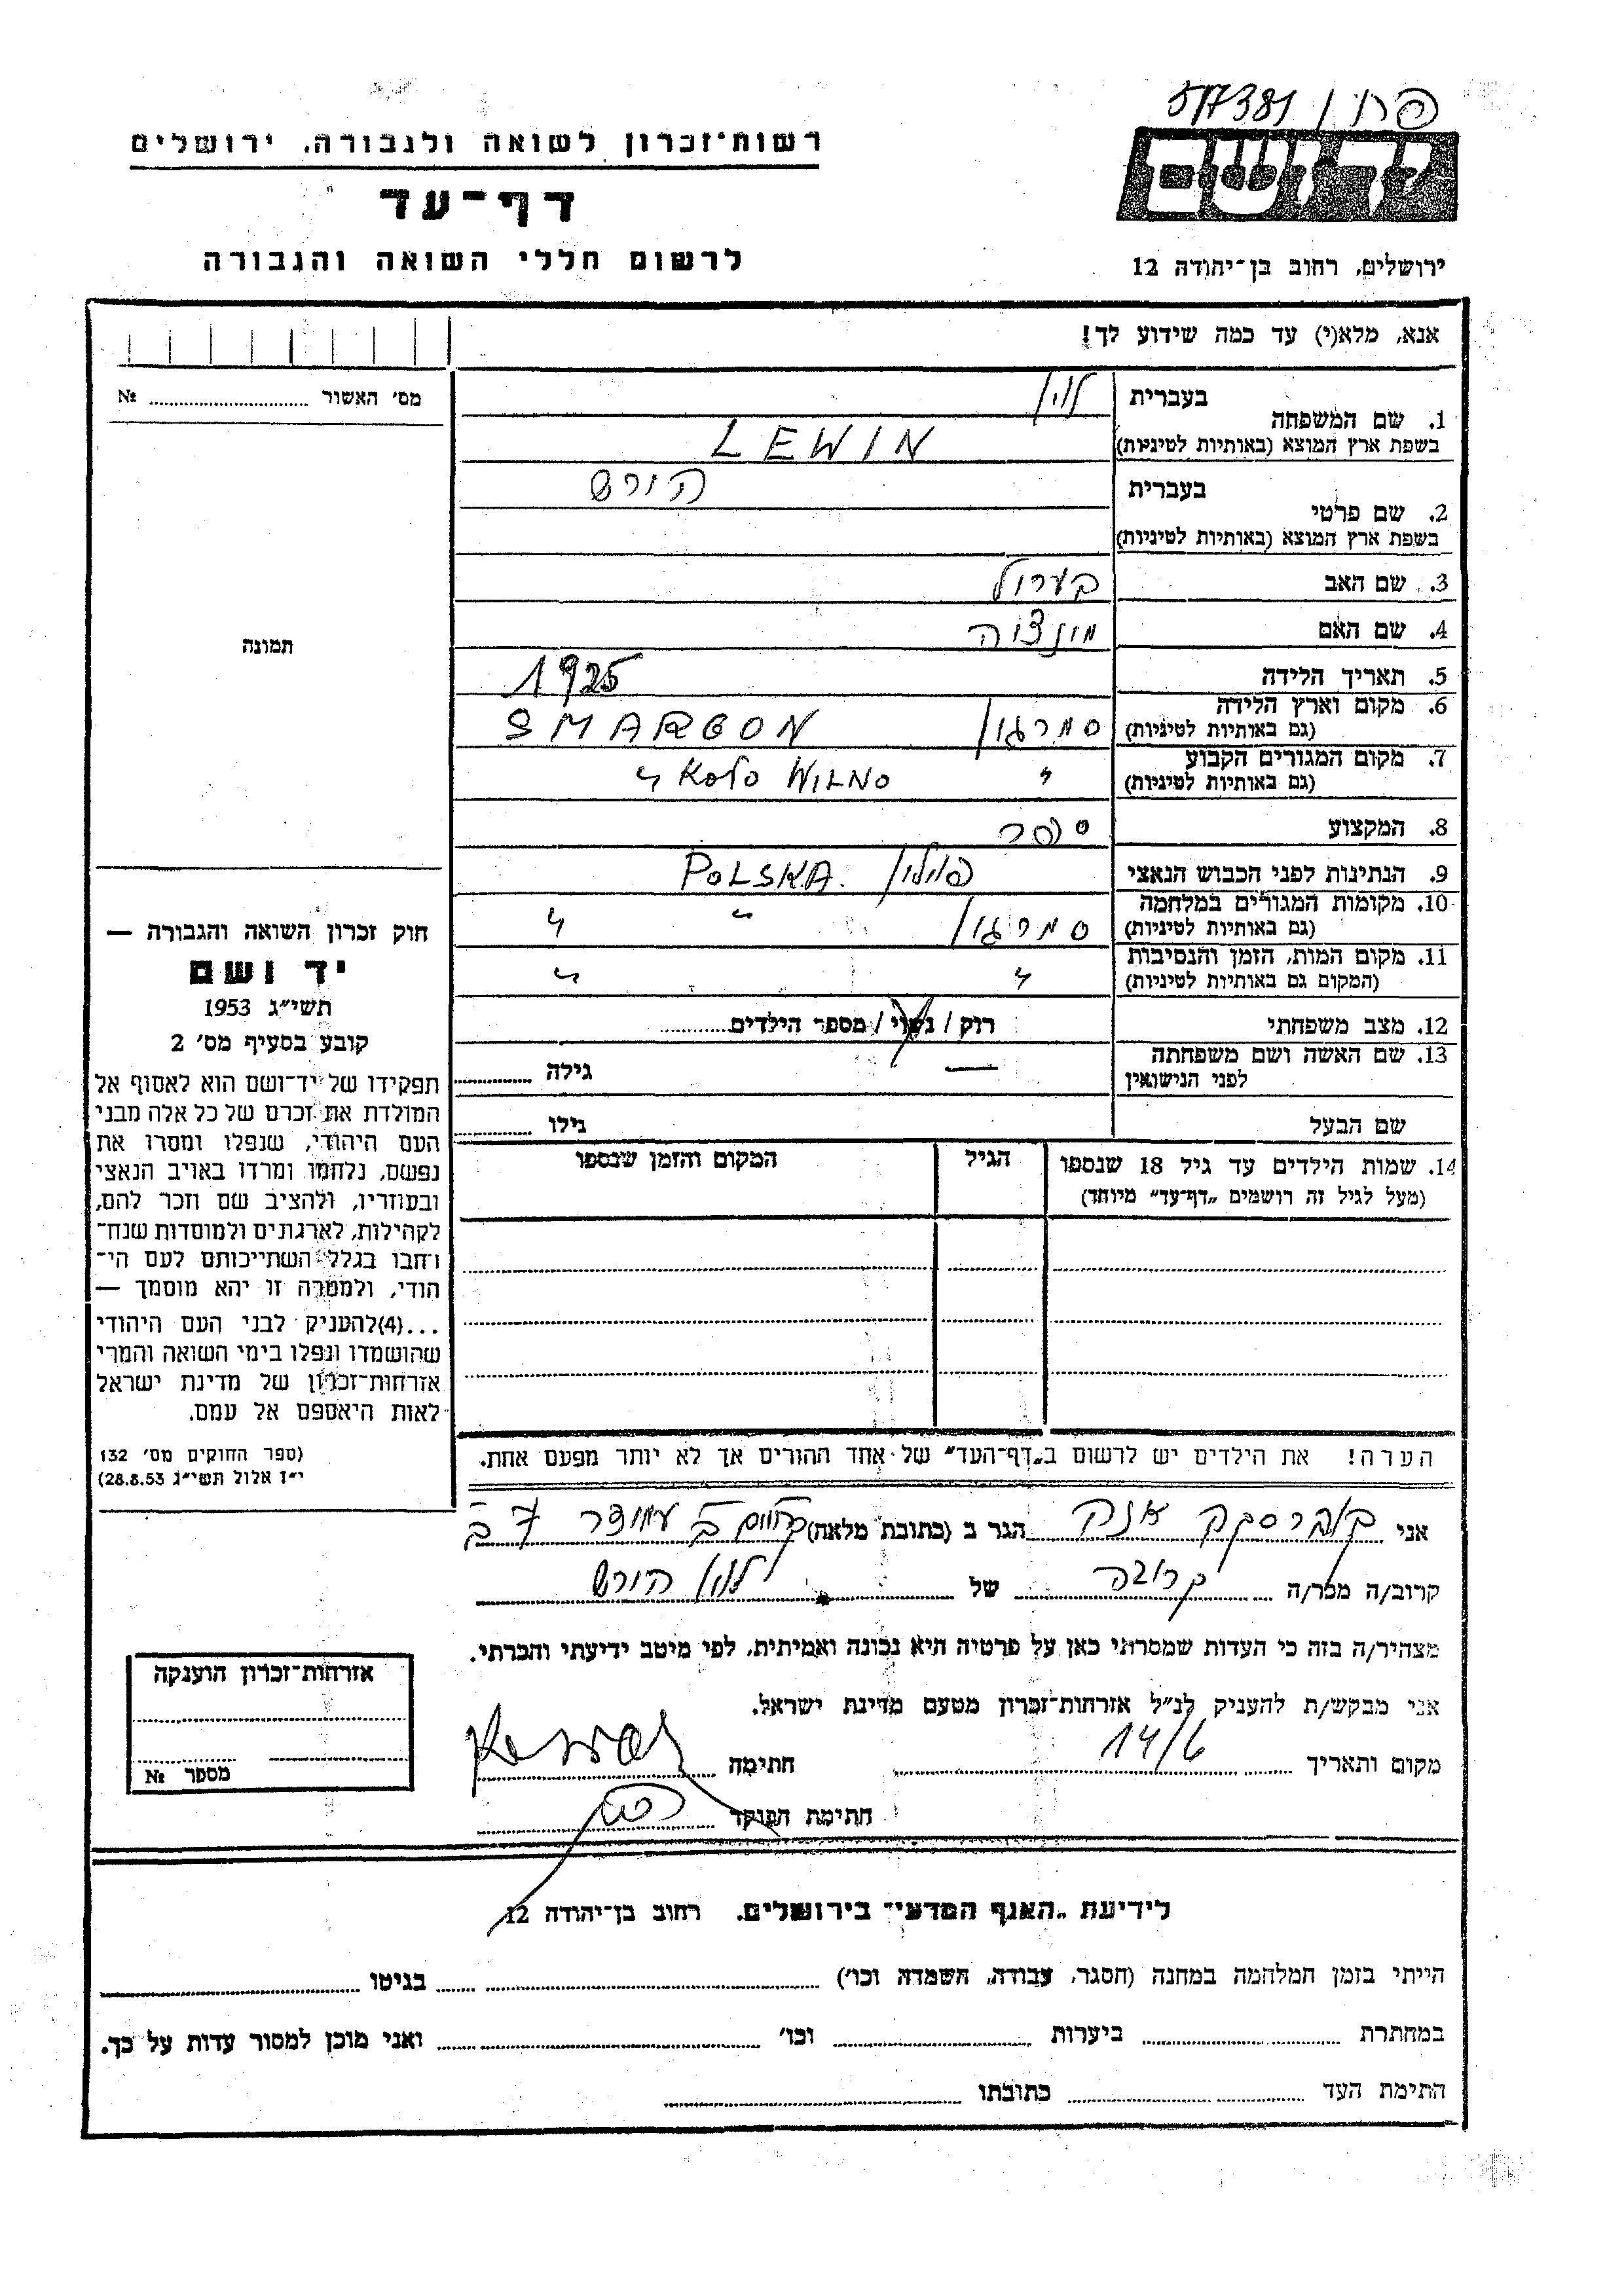 517381 / פרון
רשות־זכרון לשואה ולגבורה, ירושלים
יד ושם
דף־עד
לרשום חללי השואה והגבורה
ירושלים, רחוב בן־יהודה 12
אנא, מלא(י) עד כמה שידוע לך!
מס׳ האשור № 
1. שם המשפחה בעברית לוין
בשפת ארץ המוצא (באותיות לטיניות) LEWIN
2. שם פרטי בעברית הירש
בשפת ארץ המוצא (באותיות לטיניות)
3. שם האב בערול
4. שם האם
5. תאריך הלידה 1925
6. מקום וארץ הלידה (גם באותיות לטיניות) סמרגון SMARGON
7. מקום המגורים הקבוע (גם באותיות לטיניות) " " KOŁO WILNO
8. המקצוע ספר
9. הנתינות לפני הכבוש הנאצי פוילין POLSKA.
10. מקומות המגורים במלחמה (גם באותיות לטיניות) סמרגון " "
11. מקום המות, הזמן והנסיבות (המקום גם באותיות לטיניות) " "
12. מצב משפחתי רוק / נשוי / מספר הילדים
13. שם האשה ושם משפחתה לפני הנישואין — גילה
שם הבעל גילו
14. שמות הילדים עד גיל 18 שנספו הגיל המקום והזמן שנספו
(מעל לגיל זה רושמים „דף־עד״ מיוחד)
הערה! את הילדים יש לרשום ב„דף־העד״ של אחד ההורים אך לא יותר מפעם אחת.
תמונה
חוק זכרון השואה והגבורה —
יד ושם
תשי״ג 1953
קובע בסעיף מס׳ 2
תפקידו של יד־ושם הוא לאסוף אל
המולדת את זכרם של כל אלה מבני
העם היהודי, שנפלו ומסרו את
נפשם, נלחמו ומרדו באויב הנאצי
ובעוזריו, ולהציב שם וזכר להם,
לקהילות, לארגונים ולמוסדות שנח־
רחבו בגלל השתייכותם לעם הי־
הודי, ולמטרה זו יהא מוסמך —
...(4)להעניק לבני העם היהודי
שהושמדו ונפלו בימי השואה והמרי
אזרחות־זכרון של מדינת ישראל
לאות היאספם אל עמם.
(ספר החוקים מס׳ 132
י״ז אלול תשי״ג 28.8.53)
אני הגר ב (כתובת מלאה)
קרוב/ה מכר/ה קרובה של לוין הירש
מצהיר/ה בזה כי העדות שמסרתי כאן על פרטיה היא נכונה ואמיתית, לפי מיטב ידיעתי והכרתי.
אני מבקש/ת להעניק לנ״ל אזרחות־זכרון מטעם מדינת ישראל.
מקום ותאריך 14/6 חתימה
חתימת הפוקד
אזרחות־זכרון הוענקה
מספר №
לידיעת „האגף המדעי״ בירושלים. רחוב בן־יהודה 12
הייתי בזמן המלחמה במחנה (הסגר, עבודה, השמדה וכו׳) בגיטו
במחתרת ביערות וכו׳ ואני מוכן למסור עדות על כך.
התימת העד כתובתו